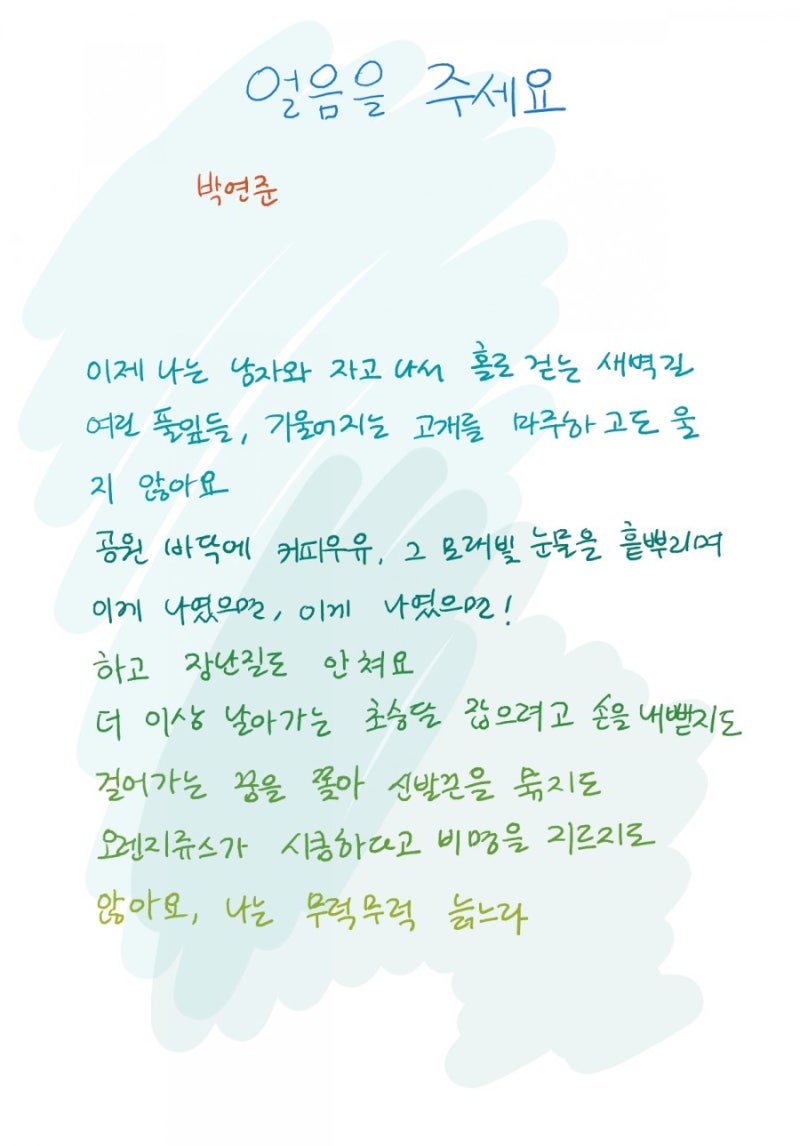 얼음을 주세요
박연준
이제 나는 남자와 자고 나서 홀로 걷는 새벽길
여린 풀잎들, 기울어지는 고개를 마주하고도 울
지 않아요
공원 바닥에 커피우유, 그 모래빛 눈물을 흩뿌리며
이게 나였으면, 이게 나였으면!
하고 장난질도 안 쳐요
더 이상 날아가는 초승달 잡으려고 손을 내뻗지도
걸어가는 꿈을 쫓아 신발끈을 묶지도
오렌지쥬스가 시큼하다고 비명을 지르지도
않아요, 나는 무럭무럭 늙느라